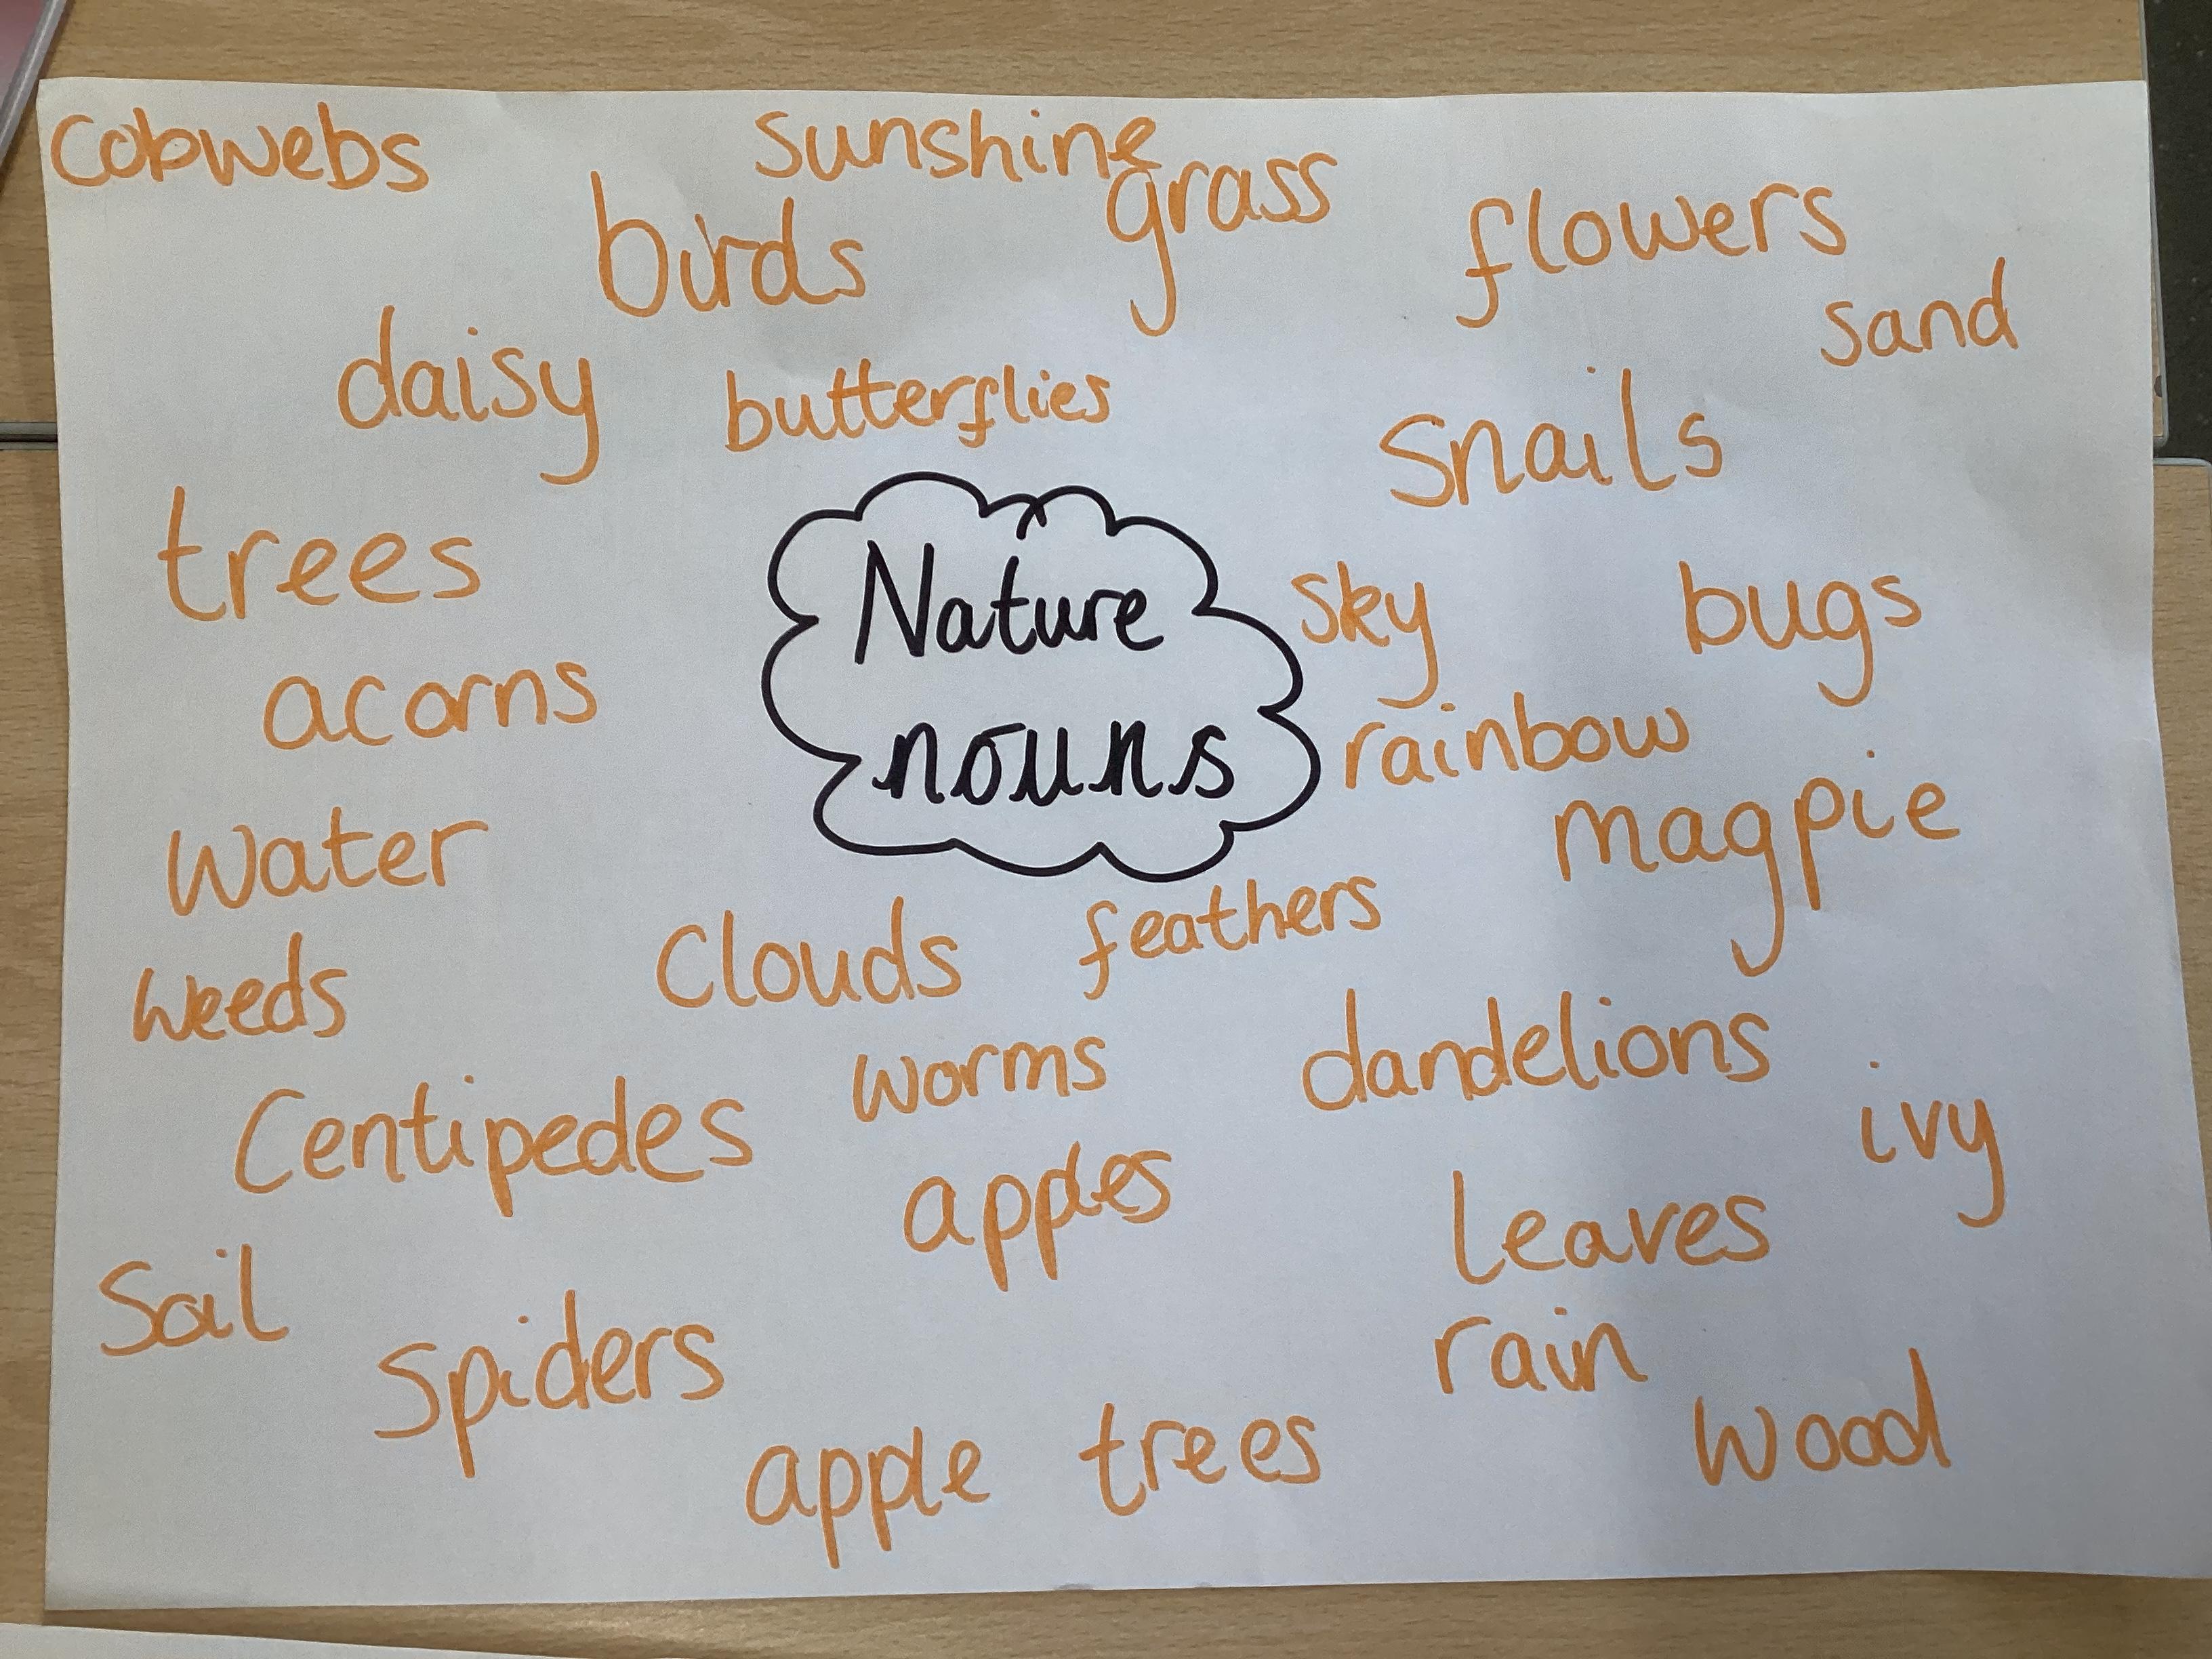 Cobwebs
sunshine
grass
birds
flowers
sand
daisy
butterflies
snails
trees
Nature
nouns
sky
bugs
acorns
rainbow
magpie
water
clouds
feathers
weeds
worms
dandelions
Centipedes
ivy
apples
leaves
Soil
Spiders
rain
apple trees
wood